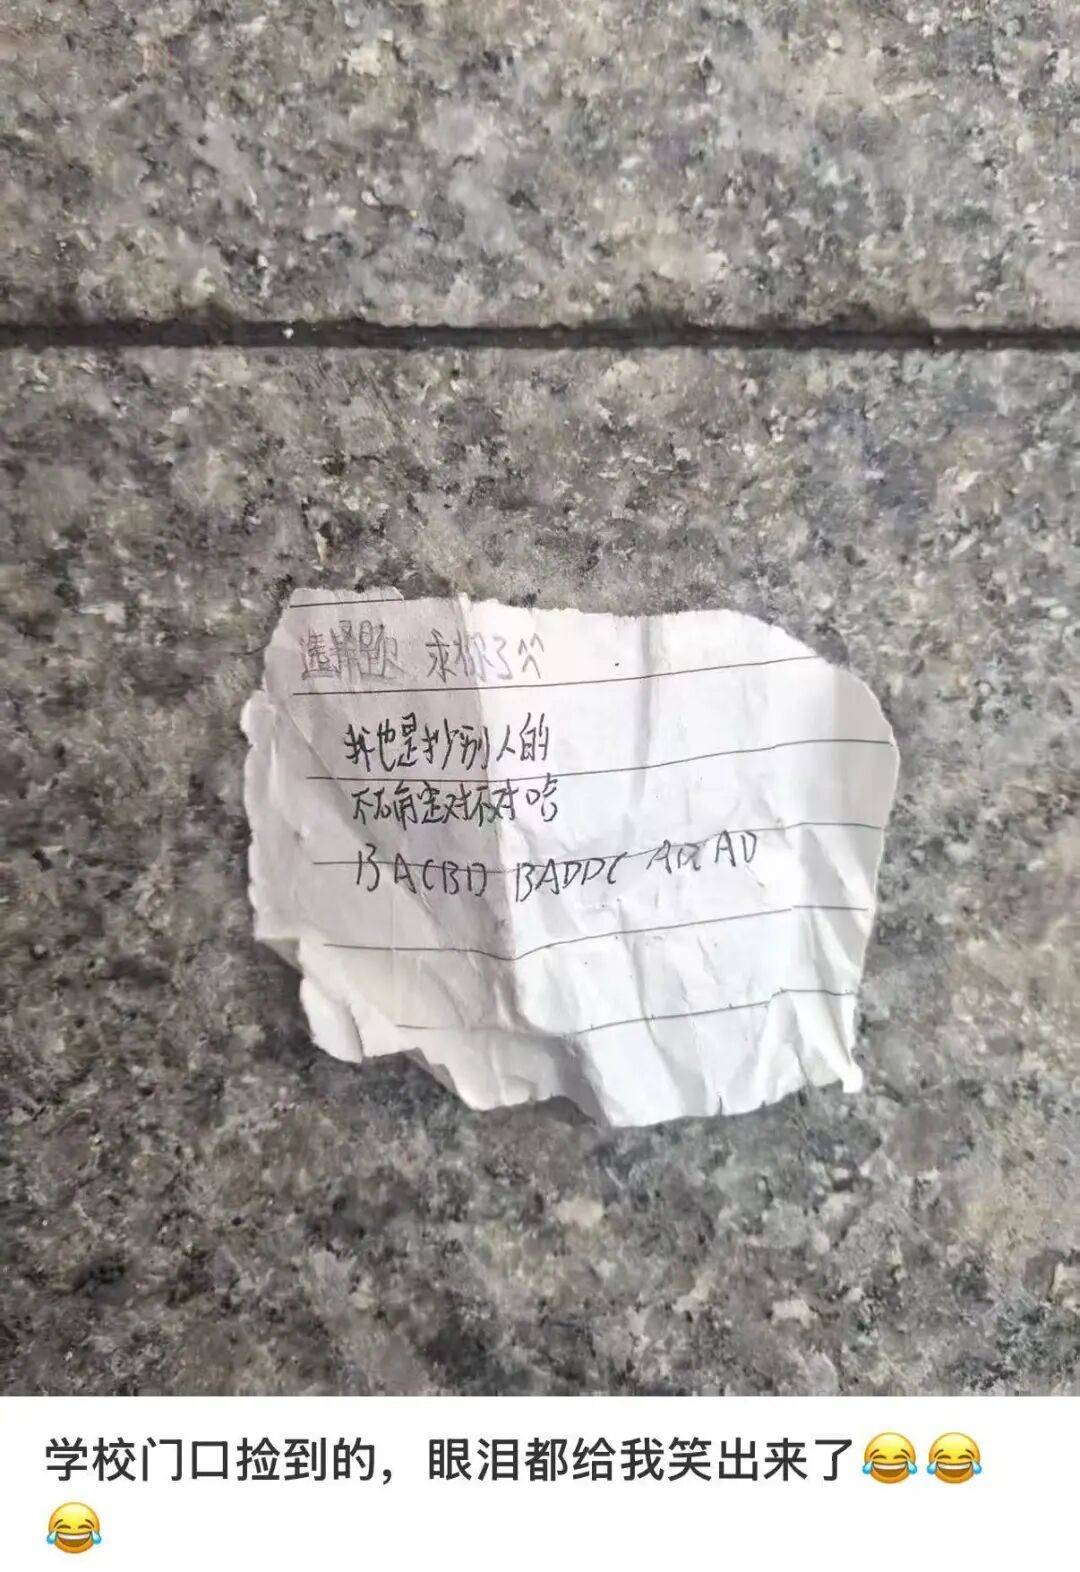 选择题 求你了^^
我也是抄别人的
不石角定对不对哈
BACBD BADDC ADCAD
学校门口捡到的，眼泪都给我笑出来了😂😂
😂